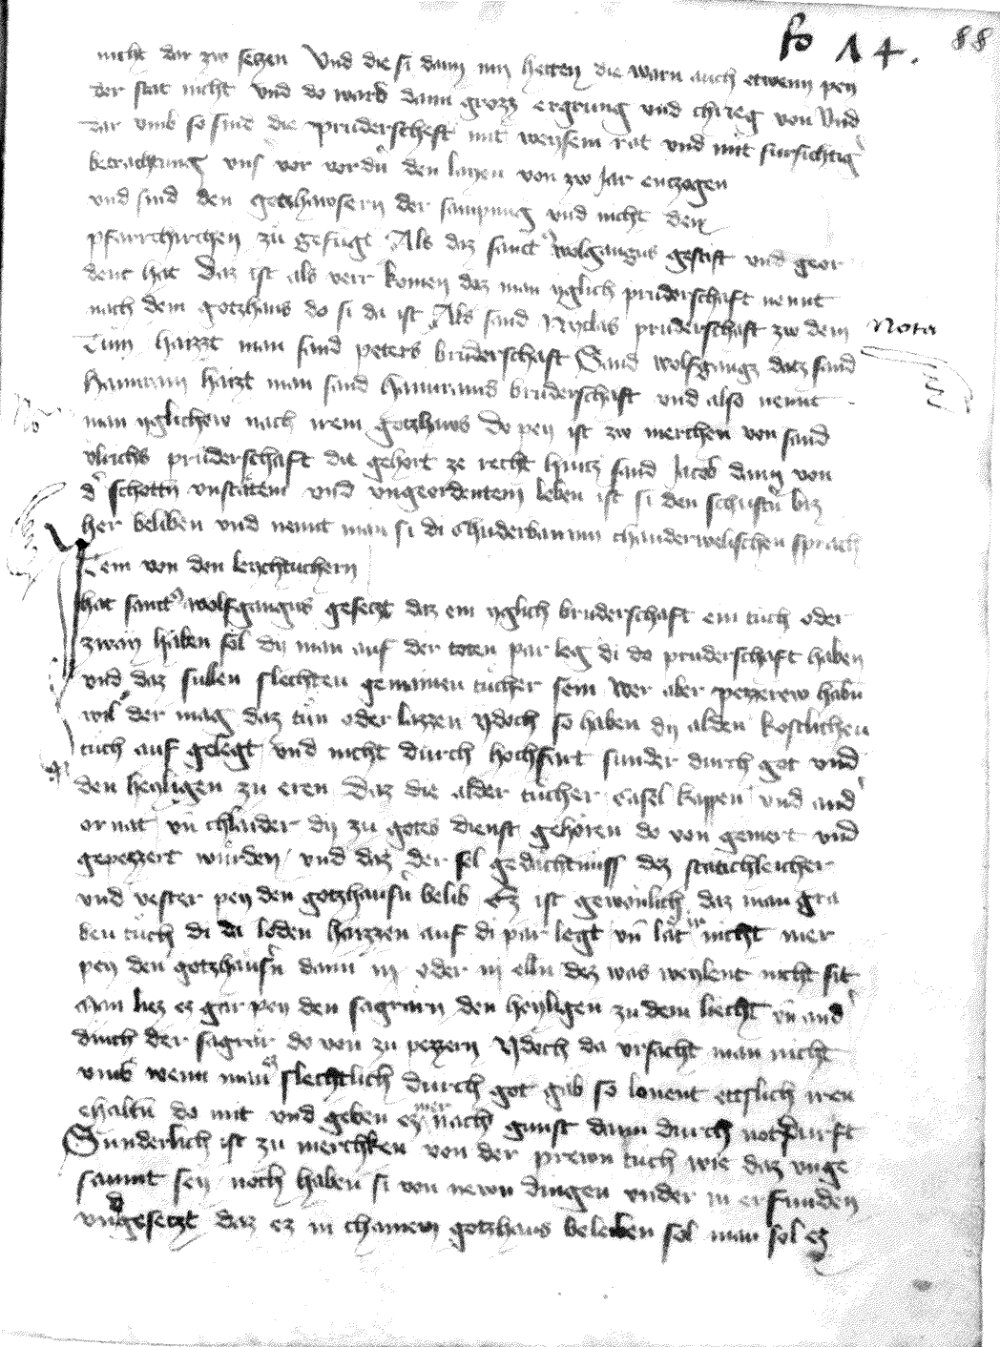 fo 14. 88
nicht dar zw seczen Vnd die si dann inn hetten die warn auch etwenn pey
der stat nicht vnd do ward dann grozz ergrung vnd chrieg von Vnd
dar vmb so sind die pruderscheft mit weysem rat vnd mit fursichtig
betrachtung vns vor vordn den layen von zw Jar enczogen
vnd sind den gotzhawsern der samnung vnd nicht den
pfarrchirchen zu gefugt Als daz sanct wolfgangus gestift vnd geor
dent hat Daz ist als verr komen daz man yglich pruderschaft nennt
nach dem gotzhaus do si da ist Als sand Nyclas pruderschaft zw dem
Nota
Tum haizzt man sand peters bruderschaft Sand wolfgangz datz sand
haimram haizt man sand haimrams bruderschaft vnd also nennt
man yglichew nach irem gotzhaws Do pey ist zw merchen von sand
vlrichs pruderschaft die gehort ze recht hintz sand Jacob dann von
d schottn vnstatem vnd vngeordentem leben ist si den schustn biz
her beliben vnd nennt man si di in chauderwelischen sprach
Item von den leychtuchern
hat sanct wolfgangus gesetzt daz ein yglich bruderschaft ein tuch oder
zway haben sol dy man auf der toten par leg di do pruderschaft haben
vnd daz sullen slechten gemainen tucher sein wer aber pezzerew habn
wil der mag daz tun oder lazzen ydoch so haben dy alden kostlichen
tuch auf gelegt vnd nicht durch hochfart sunder durch got vnd
den heyligen zu eren Daz die alder tucher casel kappen vnd and
ornat vn chlaider dy zu gotes dienst gehoren do von gemert vnd
gepezzert wurden vnd daz der sel gedachtnuss dez
vnd vester pey den gotzhausn belib Ez ist gewonlich daz man gra
ben tuch di da loden haizzen auf di par legt vn lat ir nicht mer
pey den gotzhausn dann iij oder iiij elln dez was weylent nicht sit
man liez ez gar pey den sagrarn den heyligen zu dem liecht vn and
durch der sagrar do von zu pezzern Ydoch da vrsacht man nicht
vmb wenn man ez slechtlich durch got gab so lonent ettslich iren
ehaltn do mit vnd geben ez mer nach gunst dann durch notdurft
Sunderlich ist zu merchken von der prewn tuch wie daz vnge
sampt sey noch haben si von newn dingen vnder in erfunden
vnd gesetzt daz ez in chainem gotzhaus beleiben sol man sol ez